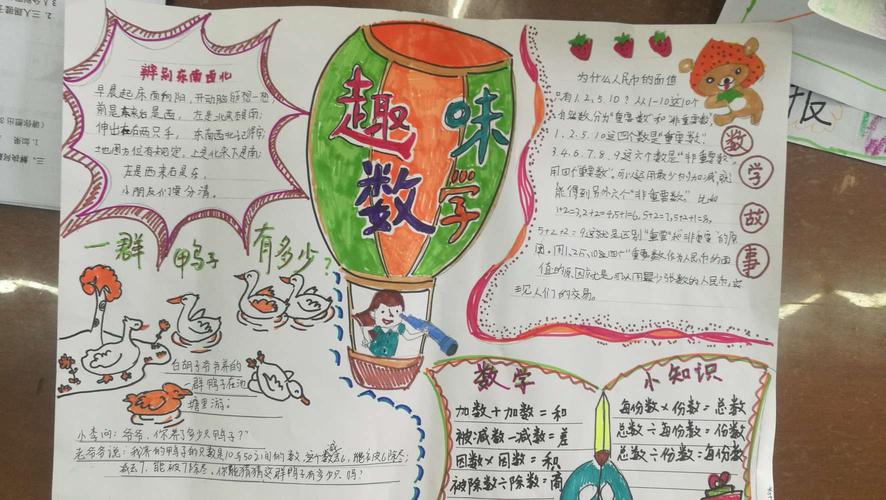 趣味数学
辩别东南西北
早晨起床面向阳,开动脑筋想一想;
前是东来后是西,左是北来右是南;
伸出左右两只手,东南西北记得清;
地图方位有规定,上是北来下是南;
左是西来右是东,
小朋友们要分清。
一群鸭子有多少?
白胡子爷爷养的
一群鸭子在池
塘里游。
小李问:爷爷,你养了多少只鸭子?
老爷爷说:我养的鸭子的只数是10与50之间的数
减去7,能被7除尽,你能猜猜这群鸭子有多少只吗?
数学故事
为什么人民币的面值
只有1、2、5、10?从1-10这10个
自然数分为“重要数”和“非重要数”,
1、2、5、10这四个数是“重要数”
3、4、6、7、8、9这六个数是“非重要数”,
用四个“重要数”,可以通过最少的加减,就
能得到另外六个“非重要数”。比如
1+2=3,2+2=4,5+1=6,5+2=7,5+2+1=8,
5+2+2=9这就是区别“重要”和“非重要”的原
因。用1、2、5、10这四个“重要数”作为人民币的面
值的原因就是,可以用最少张数的人民币,实
现人们的交易。
数学小知识
加数+加数=和
被减数-减数=差
因数×因数=积
被除数÷除数=商
每份数×份数=总数
总数÷每份数=份数
总数÷份数=每份数
报